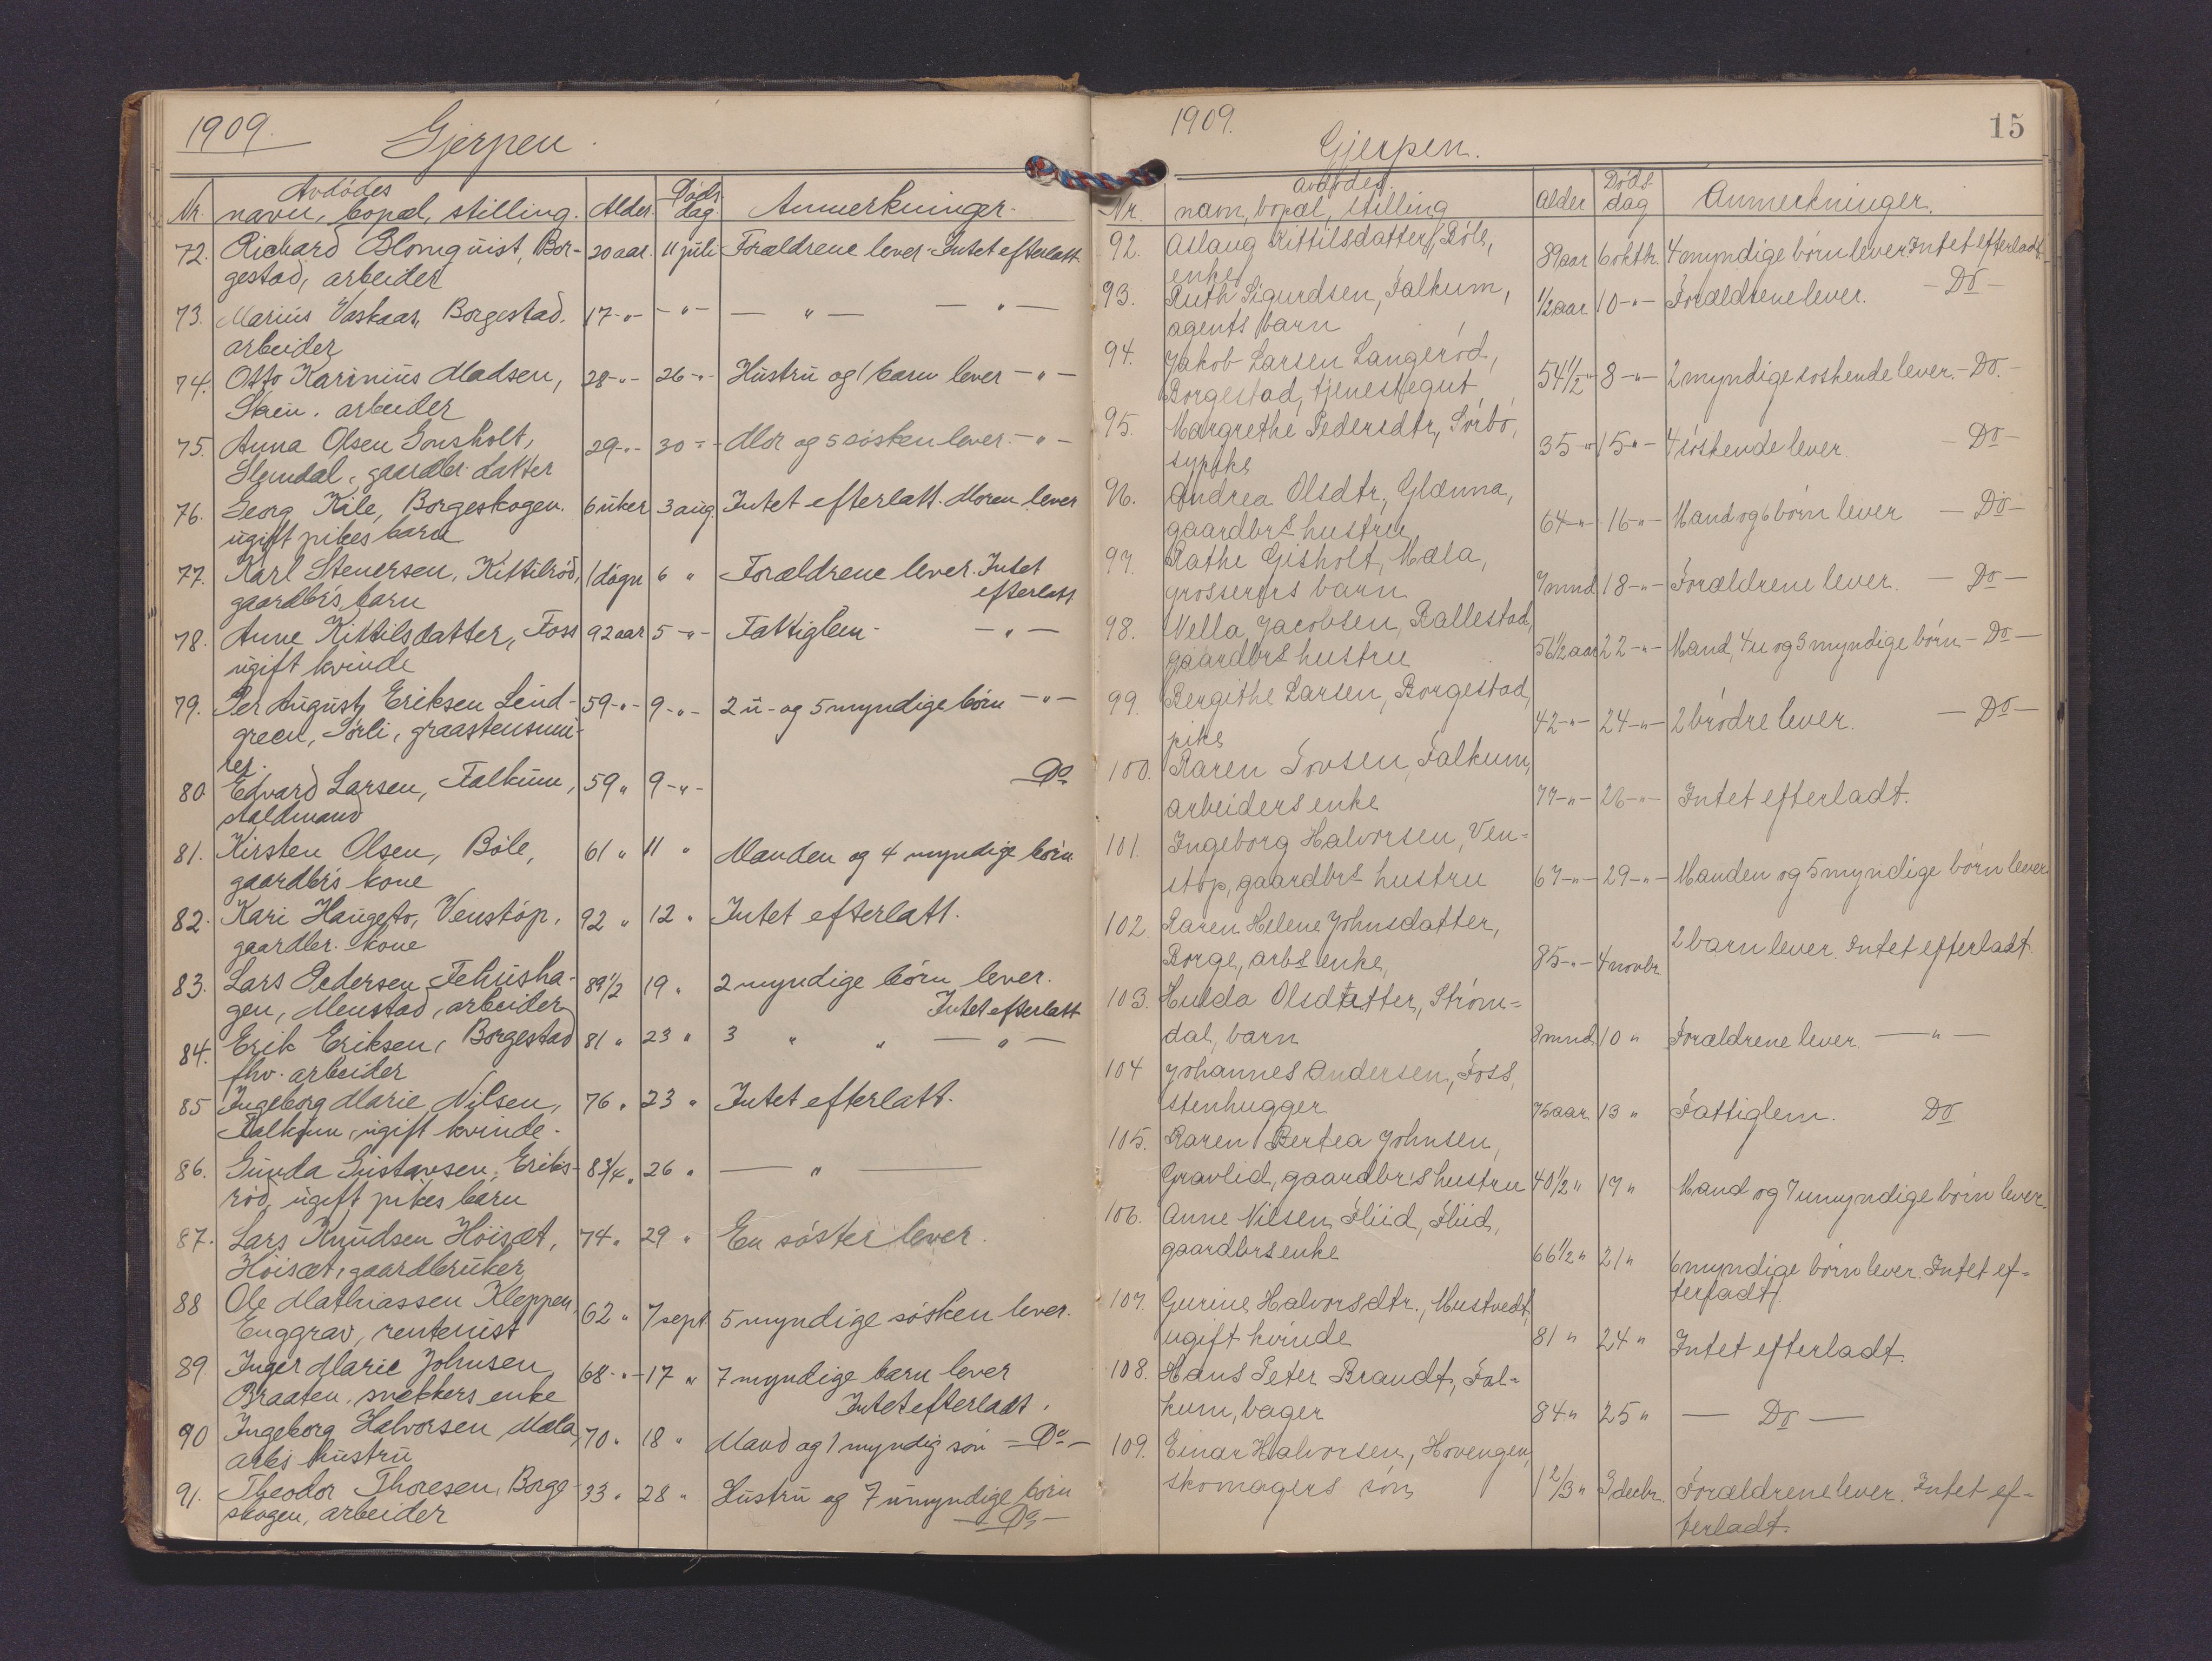 1909.
Gjerpen.
Nr. Avdødes navn, bopæl, stilling. Alder. Døds dag Anmerkninger.
72. Richard Blomquist, Bor- 20 aar. 11 juli Forældrene lever - Intet efterlatt.
gestad, arbeider
73. Marius Vaskaas, Borgestad. 17 -"- -"- — " — — " —
arbeider
74. Otto Karinius Madsen, 28 -"- 26 -"- Hustru og 1 barn lever -"-
Skien. arbeider
75. Anna Olsen Gonsholt, 29 -"- 30 -"- Mor og 5 søsken lever. -"-
Slemdal, gaardbr. datter
76. Georg Kile, Borgeskogen. 6 uker 3 aug. Intet efterlatt. Moren lever
ugift pikes barn
77. Karl Stenersen, Kittilrød, 1 døgn 6 " Forældrene lever. Intet
gaardbr's barn efterlatt
78. Anne Kittilsdatter, Foss 92 aar 5 -"- Fattiglem - — " —
ugift kvinde
79. Per August Eriksen Lind- 59 -"- 9 -"- 2 u- og 5 myndige børn -"-
green, Sørli, graastensmi-
rer.
80 Edvard Larsen, Falkum, 59 " 9 -"- Do
staldmand
81. Kirsten Olsen, Bøle, 61 " 11 " Manden og 4 myndige børn
gaardbr's kone
82. Kari Haugesto, Venstøp, 92 " 12 " Intet efterlatt.
gaardbr. kone
83. Lars Pedersen Fehusha- 89 1/2 19 " 2 myndige børn lever.
gen, Menstad, arbeider Intet efterlatt
84. Erik Eriksen, Borgestad 81 " 23 " 3 " " — " —
fhv. arbeider
85 Ingeborg Marie Nilsen, 76 " 23 " Intet efterlatt.
Falkum, ugift kvinde.
86. Gunda Gustavsen, Eriks- 8 3/4 " 26 " — " —
rød, ugift pikes barn
87. Lars Knudsen Høisæt, 74 " 29 " En søster lever.
Høisæt, gaardbruker
88 Ole Mathiassen Kleppen, 62 " 7 sept 5 myndige søsken lever.
Enggrav, rentenist
89. Inger Marie Johnsen 68 -"- 17 " 7 myndige barn lever
Braaten, snekkers enke Intet efterladt.
90 Ingeborg Halvorsen Mæla, 70 " 18 " Mand og 1 myndig søn — Do —
arbs hustru
91. Theodor Thoresen, Borge- 33 " 28 " Hustru og 7 umyndige børn
skogen, arbeider — Do —
1909.
15
Gjerpen.
Nr. avdødes navn, bopæl, stilling Alder Døds dag Anmerkninger.
92. Aslaug Kittilsdatter, Bøle, 89 aar 6 oktb. 4 myndige børn lever. Intet efterladt
enke
93. Ruth Sigurdsen, Falkum, 1/2 aar 10 -"- Forældrene lever. — Do —
agents barn
94. Jakob Larsen Langerød, 54 1/2 " 8 -"- 2 myndige søskende lever. — Do. —
Borgestad, tjenestegut
95. Margrethe Pedersdtr, Sørbø, 35 -"- 15 -"- 4 søskende lever — Do —
sypike
96. Andrea Olsdtr, Glænna, 64 -"- 16 -"- Mand og 6 børn lever — Do —
gaardbrs hustru
97. Kathe Gisholt, Mæla, 7 mnd 18 -"- Forældrene lever. — Do —
grosserers barn
98. Nella Jacobsen, Ballestad, 56 1/2 aar 22 -"- Mand, 4 u og 3 myndige børn — Do —
gaardbrs hustru
99. Bergithe Larsen, Borgestad, 42 -"- 24 -"- 2 brødre lever. — Do —
pike
100. Karen Tovsen, Falkum, 77 -"- 26 -"- Intet efterladt.
arbeiders enke
101. Ingeborg Halvorsen, Ven=
støp, gaardbrs hustru 67 -"- 29 -"- Manden og 5 myndige børn lever
102. Karen Helene Johnsdatter,
Borge, arbs enke, 85 -"- 4 novbr. 2 barn lever. Intet efterladt.
103. Hulda Olsdatter, Strøm=
dal, barn 8 mnd 10 " Forældrene lever — " —
104 Johannes Andersen, Foss,
stenhugger 75 aar 13 " Fattiglem. Do
105. Karen Bertea Johnsen,
Gravlid, gaardbr's hustru 40 1/2 " 19 " Mand og 7 umyndige børn lever.
106. Anne Nilsen Fliid, Fliid,
gaardbrs enke 66 1/2 " 21 " 6 myndige børn lever. Intet ef=
terladt.
107. Gurine Halvorsdtr., Mustvedt,
ugift kvinde 81 " 24 " Intet efterladt.
108. Hans Peter Brandt, Fal=
kum, bager 84 " 25 " — Do —
109. Einar Halvorsen, Hovengen,
skomagers søn 1 2/3 " 3 decbr. Forældrene lever. Intet ef=
terladt.